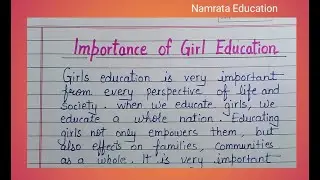 Namrata Education
Importance of Girl Education
Girls education is very important
from every perspective of life and
society. when we educate girls, we
educate a whole nation. Educating
girls not only empowers them, but
also effects on families, communities
as a whole. It is very important